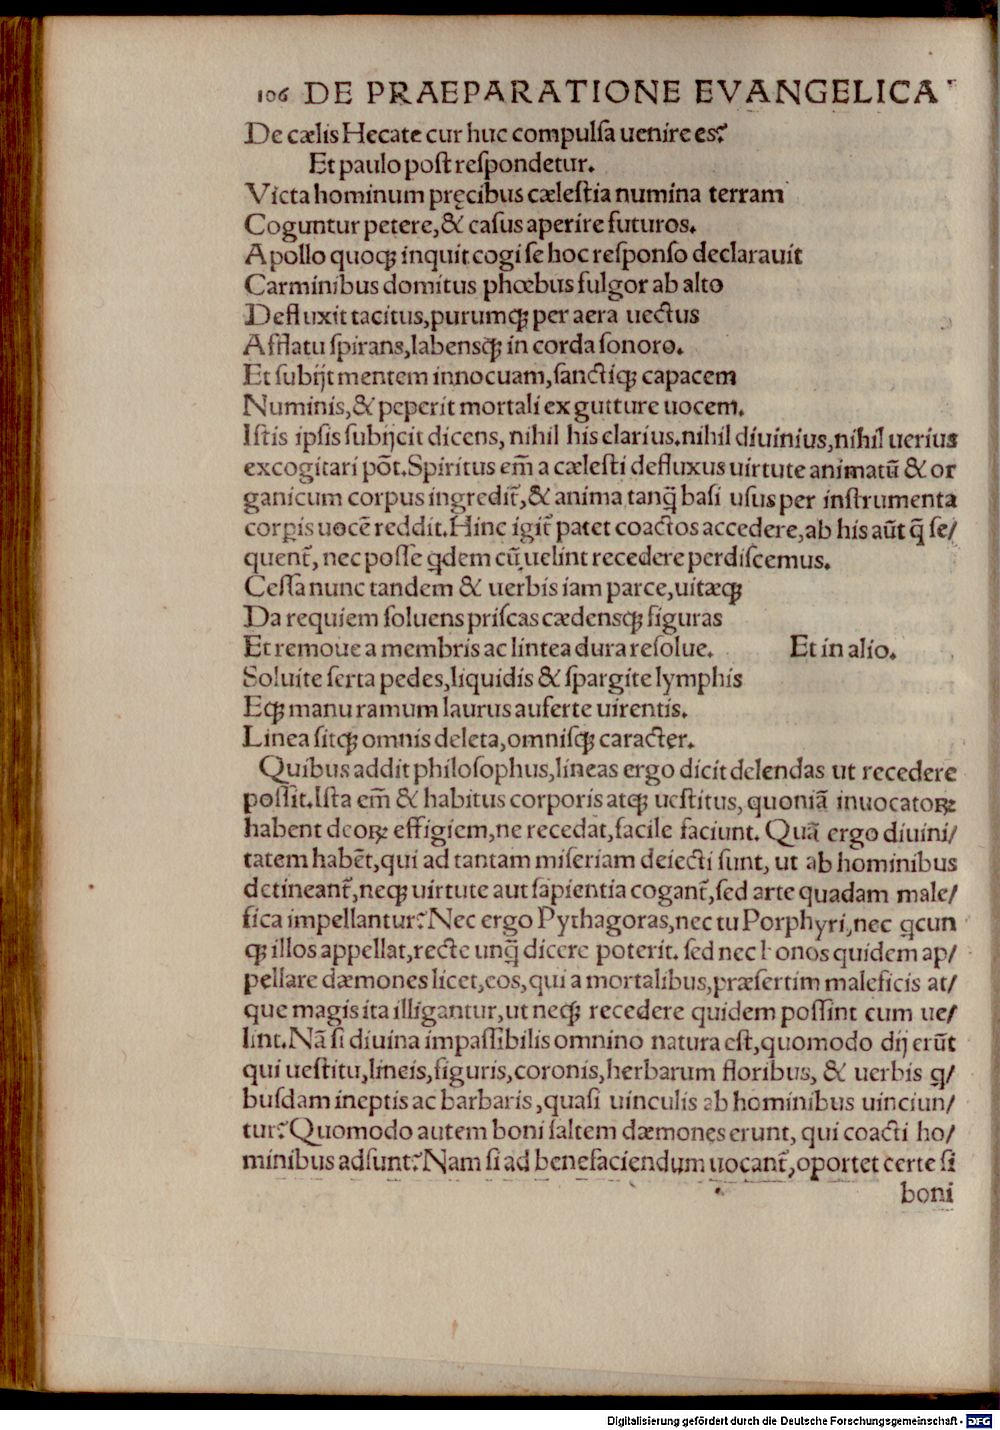 106 DE PRAEPARATIONE EVANGELICA
De cælis Hecate cur huc compulſa uenire es?
Et paulo poſt reſpondetur.
Victa hominum pręcibus cæleſtia numina terram
Coguntur petere, & caſus aperire futuros.
Apollo quoq; inquit cogi ſe hoc reſponſo declarauit
Carminibus domitus phœbus fulgor ab alto
Defluxit tacitus, purumq; per aera uectus
Afflatu ſpirans, labensq; in corda ſonoro.
Et ſubijt mentem innocuam, ſanctiq; capacem
Numinis, & peperit mortali ex gutture uocem.
Iſtis ipſis ſubijcit dicens, nihil his clarius. nihil diuinius, nihil uerius
excogitari põt. Spiritus em̃ a cæleſti defluxus uirtute animatũ & or
ganicum corpus ingredit̃, & anima tanq̃ baſi uſus per inſtrumenta
corꝑis uocẽ reddit. Hinc igit̃ patet coactos accedere, ab his aũt q̃ ſe/
quent̃, nec poſſe qdem cũ uelint recedere perdiſcemus.
Ceſſa nunc tandem & uerbis iam parce, uitæq;
Da requiem ſoluens priſcas cædensq; figuras
Et remoue a membris ac lintea dura reſolue. Et in alio.
Soluite ſerta pedes, liquidis & ſpargite lymphis
Eq; manu ramum laurus auferte uirentis.
Linea ſitq; omnis deleta, omniſq; caracter.
Quibus addit philoſophus, lineas ergo dicit delendas ut recedere
poſſit. Iſta em̃ & habitus corporis atq; ueſtitus, quoniã inuocatoꝝ
habent deoꝝ effigiem, ne recedat, facile faciunt. Quã ergo diuini/
tatem habẽt, qui ad tantam miſeriam deiecti ſunt, ut ab hominibus
detineant̃, neq; uirtute aut ſapientia cogant̃, ſed arte quadam male/
fica impellantur? Nec ergo Pythagoras, nec tu Porphyri, nec qcun
q; illos appellat, recte unq̃ dicere poterit. ſed nec bonos quidem ap/
pellare dæmones licet, eos, qui a mortalibus, præſertim maleficis at/
que magis ita illigantur, ut neq; recedere quidem poſſint cum ue/
lint. Nã ſi diuina impaſſibilis omnino natura eſt, quomodo dij erũt
qui ueſtitu, lineis, figuris, coronis, herbarum floribus, & uerbis q/
buſdam ineptis ac barbaris, quaſi uinculis ab hominibus uinciun/
tur? Quomodo autem boni ſaltem dæmones erunt, qui coacti ho/
minibus adſunt? Nam ſi ad benefaciendum uocant̃, oportet certe ſi
boni
Digitalisierung gefördert durch die Deutsche Forschungsgemeinschaft - DFG